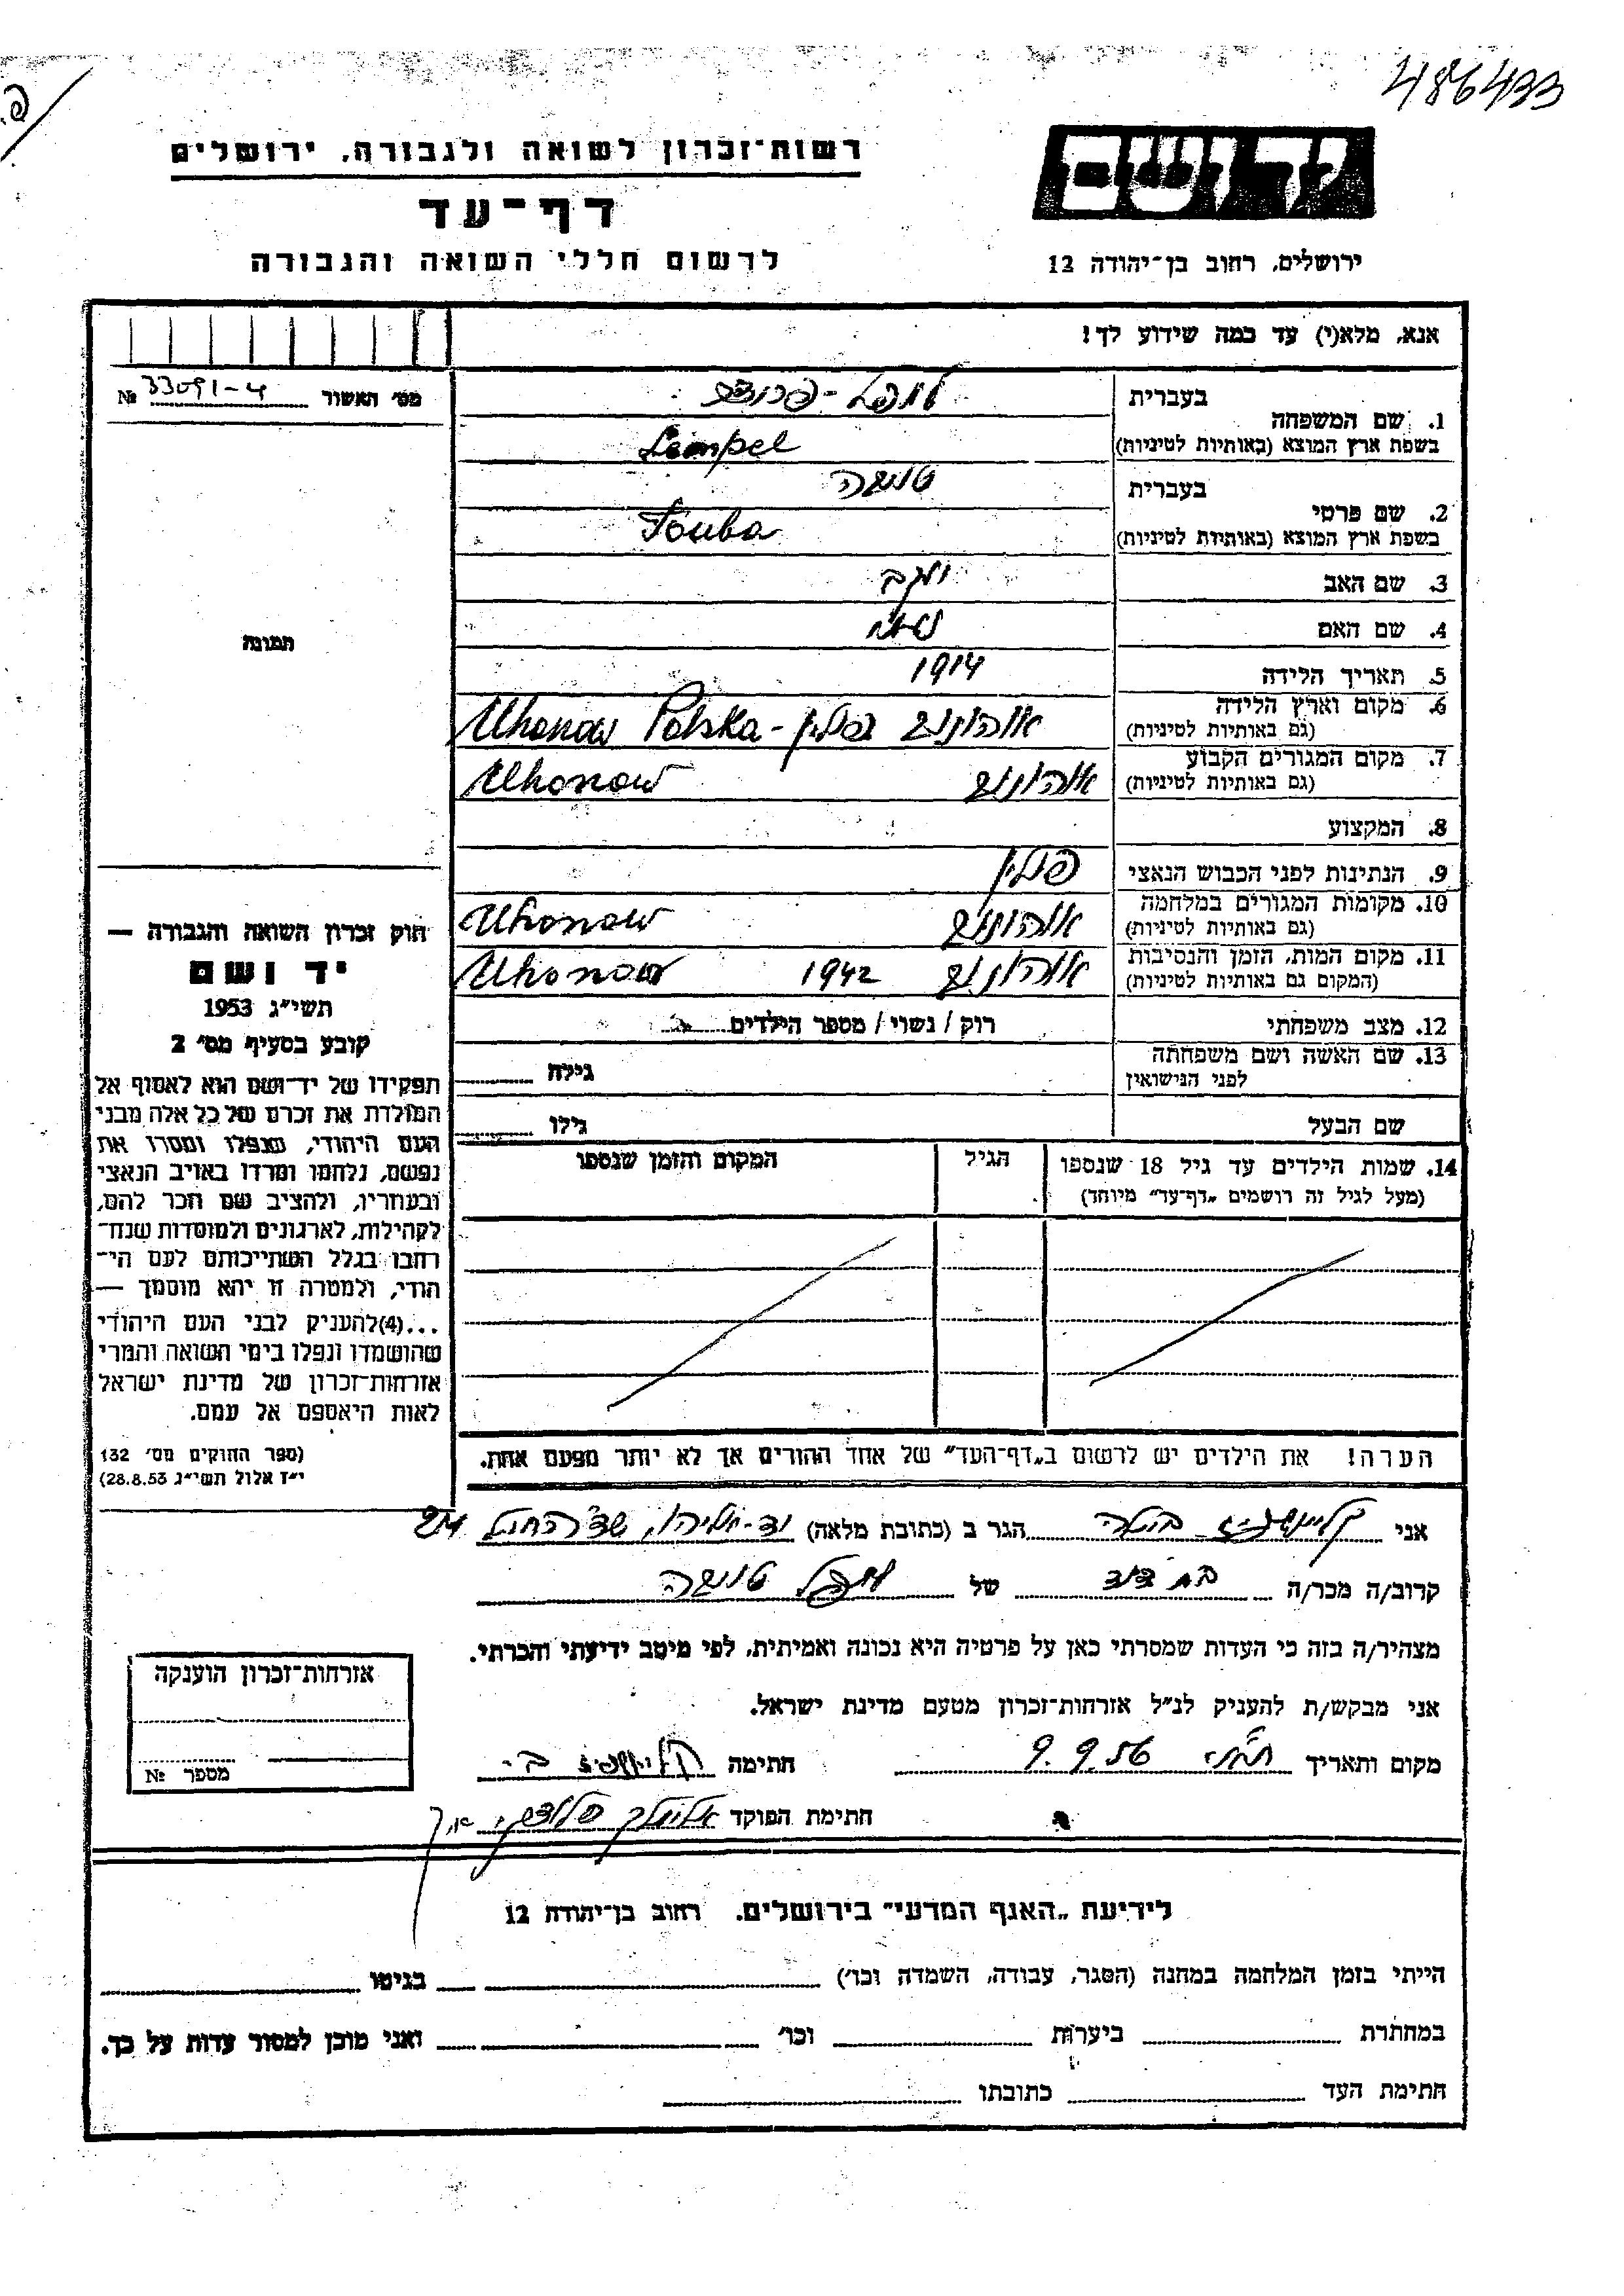 486433
רשות־זכרון לשואה ולגבורה, ירושלים
דף־עד
לרשום חללי השואה והגבורה
יד ושם
ירושלים, רחוב בן־יהודה 12
אנא, מלא(י) עד כמה שידוע לך!
מס׳ האשור 33091-4 №
תמונה
בעברית
1. שם המשפחה
בשפת ארץ המוצא (באותיות לטיניות) Lempel
בעברית טובה
2. שם פרטי
בשפת ארץ המוצא (באותיות לטיניות) Touba
3. שם האב יעקב
4. שם האם
5. תאריך הלידה 1914
6. מקום וארץ הלידה אוהונוב פולין - Uhonow Polska
(גם באותיות לטיניות)
7. מקום המגורים הקבוע אוהונוב Uhonow
(גם באותיות לטיניות)
8. המקצוע
9. הנתינות לפני הכבוש הנאצי פולין
10. מקומות המגורים במלחמה אוהונוב Uhonow
(גם באותיות לטיניות)
11. מקום המות, הזמן והנסיבות אוהונוב 1942 Uhonow
(המקום גם באותיות לטיניות)
12. מצב משפחתי רוק / נשוי / מספר הילדים
13. שם האשה ושם משפחתה גילה
לפני הנישואין
שם הבעל גילו
14. שמות הילדים עד גיל 18 שנספו הגיל המקום והזמן שנספו
(מעל לגיל זה רושמים „דף־עד״ מיוחד)
הערה! את הילדים יש לרשום ב„דף־העד״ של אחד ההורים אך לא יותר מפעם אחת.
חוק זכרון השואה והגבורה —
יד ושם
תשי״ג 1953
קובע בסעיף מס׳ 2
תפקידו של יד־ושם הוא לאסוף אל
המולדת את זכרם של כל אלה מבני
העם היהודי, שנפלו ומסרו את
נפשם, נלחמו ומרדו באויב הנאצי
ובעוזריו, ולהציב שם וזכר להם,
לקהילות, לארגונים ולמוסדות שנח־
רבו בגלל השתייכותם לעם הי־
הודי, ולמטרה זו יהא מוסמך —
...(4) להעניק לבני העם היהודי
שהושמדו ונפלו בימי השואה והמרי
אזרחות־זכרון של מדינת ישראל
לאות היאספם אל עמם.
(ספר החוקים מס׳ 132
י״ז אלול תשי״ג 28.8.53)
אני הגר ב (כתובת מלאה) יד-אליהו,
קרוב/ה מכר/ה בת דוד של למפל טובה
מצהיר/ה בזה כי העדות שמסרתי כאן על פרטיה היא נכונה ואמיתית, לפי מיטב ידיעתי והכרתי.
אני מבקש/ת להעניק לנ״ל אזרחות־זכרון מטעם מדינת ישראל.
מקום ותאריך 9.9.56 חתימה
חתימת הפוקד
אזרחות־זכרון הוענקה
מספר №
לידיעת „האגף המדעי״ בירושלים, רחוב בן־יהודה 12
הייתי בזמן המלחמה במחנה (הסגר, עבודה, השמדה וכו׳) בגיטו
במחתרת ביערות וכו׳ ואני מוכן למסור עדות על כך.
חתימת העד כתובתו